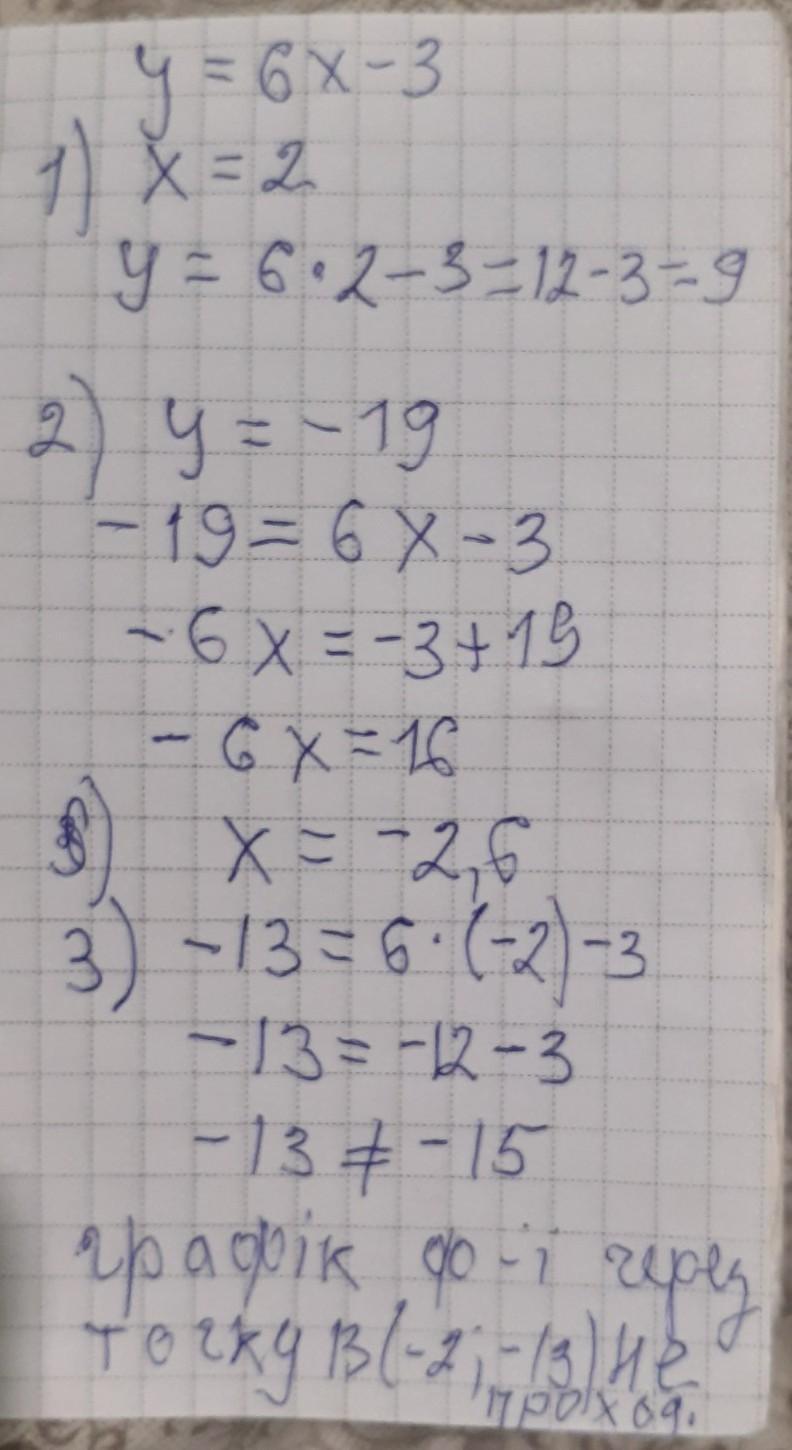 y = 6x - 3
1) x = 2
y = 6 · 2 - 3 = 12 - 3 = 9
2) y = -19
-19 = 6x - 3
-6x = -3 + 19
-6x = 16
x = -2,6
3) -13 = 6 · (-2) - 3
-13 = -12 - 3
-13 ≠ -15
графік ф-ї через
точку В(-2; -13) не
проход.